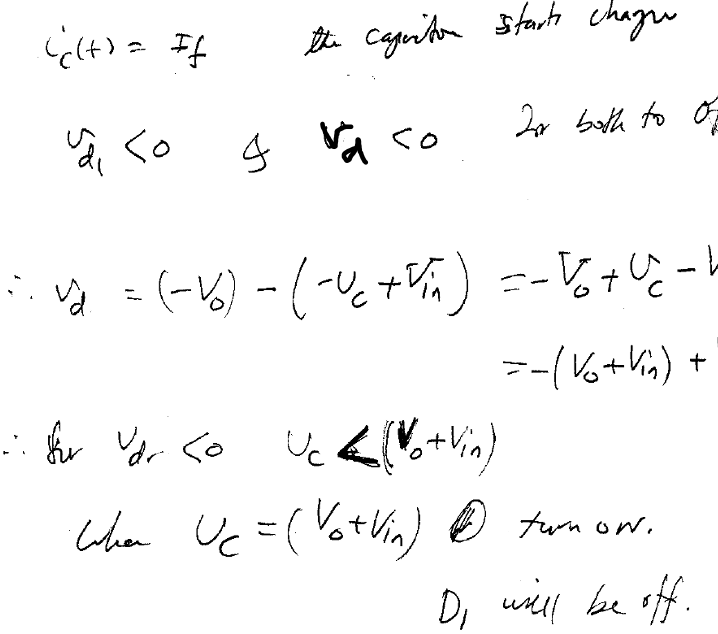 i_c(t) = I_f the capacitor starts charge
v_d1 < 0 & v_d < 0 for both to of
∴ v_d = (-V_o) - (-v_c + V_in) = -V_o + v_c - V
= -(V_o + V_in) +
∴ for v_dr < 0 v_c < (V_o + V_in)
when v_c = (V_o + V_in) turn on.
D_1 will be off.